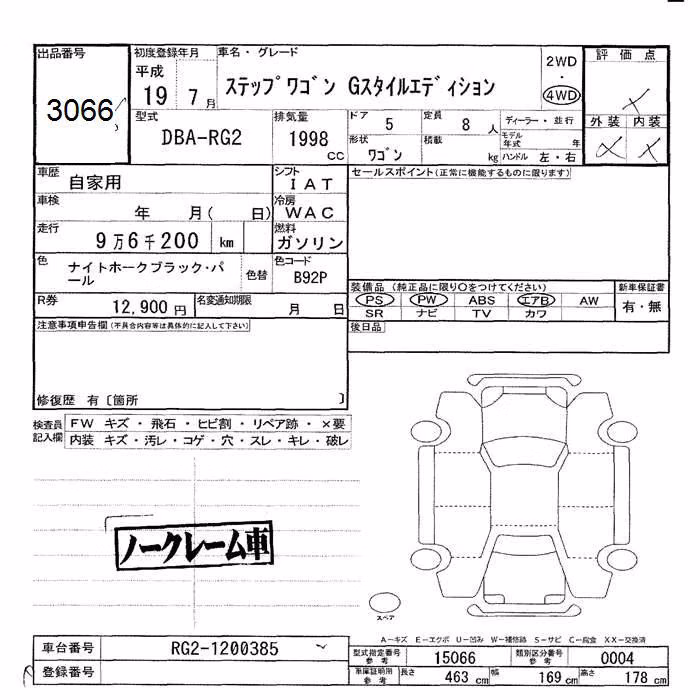 出品番号
3066
初度登録年月
平成
19 7月
車名・グレード
ステップワゴン Gスタイルエディション
2WD
・
4WD
評価点
外装 内装
型式
DBA-RG2
排気量
1998
CC
ドア
5
定員
8 人
形状
ワゴン
積載
kg
ディーラー・並行
モデル
年式 年
ハンドル 左・右
車歴
自家用
シフト
IAT
車検
年 月( 日)
冷房
WAC
走行
9万6千200 km
燃料
ガソリン
色
ナイトホークブラック・パ
ール
色替
色コード
B92P
R券
12,900 円
名変通知期限
月 日
セールスポイント(正常に機能するものに限ります)
装備品(純正品に限り○をつけてください)
PS PW ABS エアB AW
SR ナビ TV カワ
新車保証書
有・無
後日品
注意事項申告欄(不具合内容等は具体的に記入して下さい)
修復歴 有〔箇所 〕
検査員
記入欄
FW キズ・飛石・ヒビ割・リペア跡・×要
内装 キズ・汚レ・コゲ・穴・スレ・キレ・破レ
ノークレーム車
スペア
A-キズ E-エクボ U-凹み W-補修跡 S-サビ C-腐食 XX-交換済
車台番号
RG2-1200385
登録番号
型式指定番号
参考
15066
類別区分番号
参考
0004
車庫証明用
参考
長さ 463 cm 幅 169 cm 高さ 178 cm